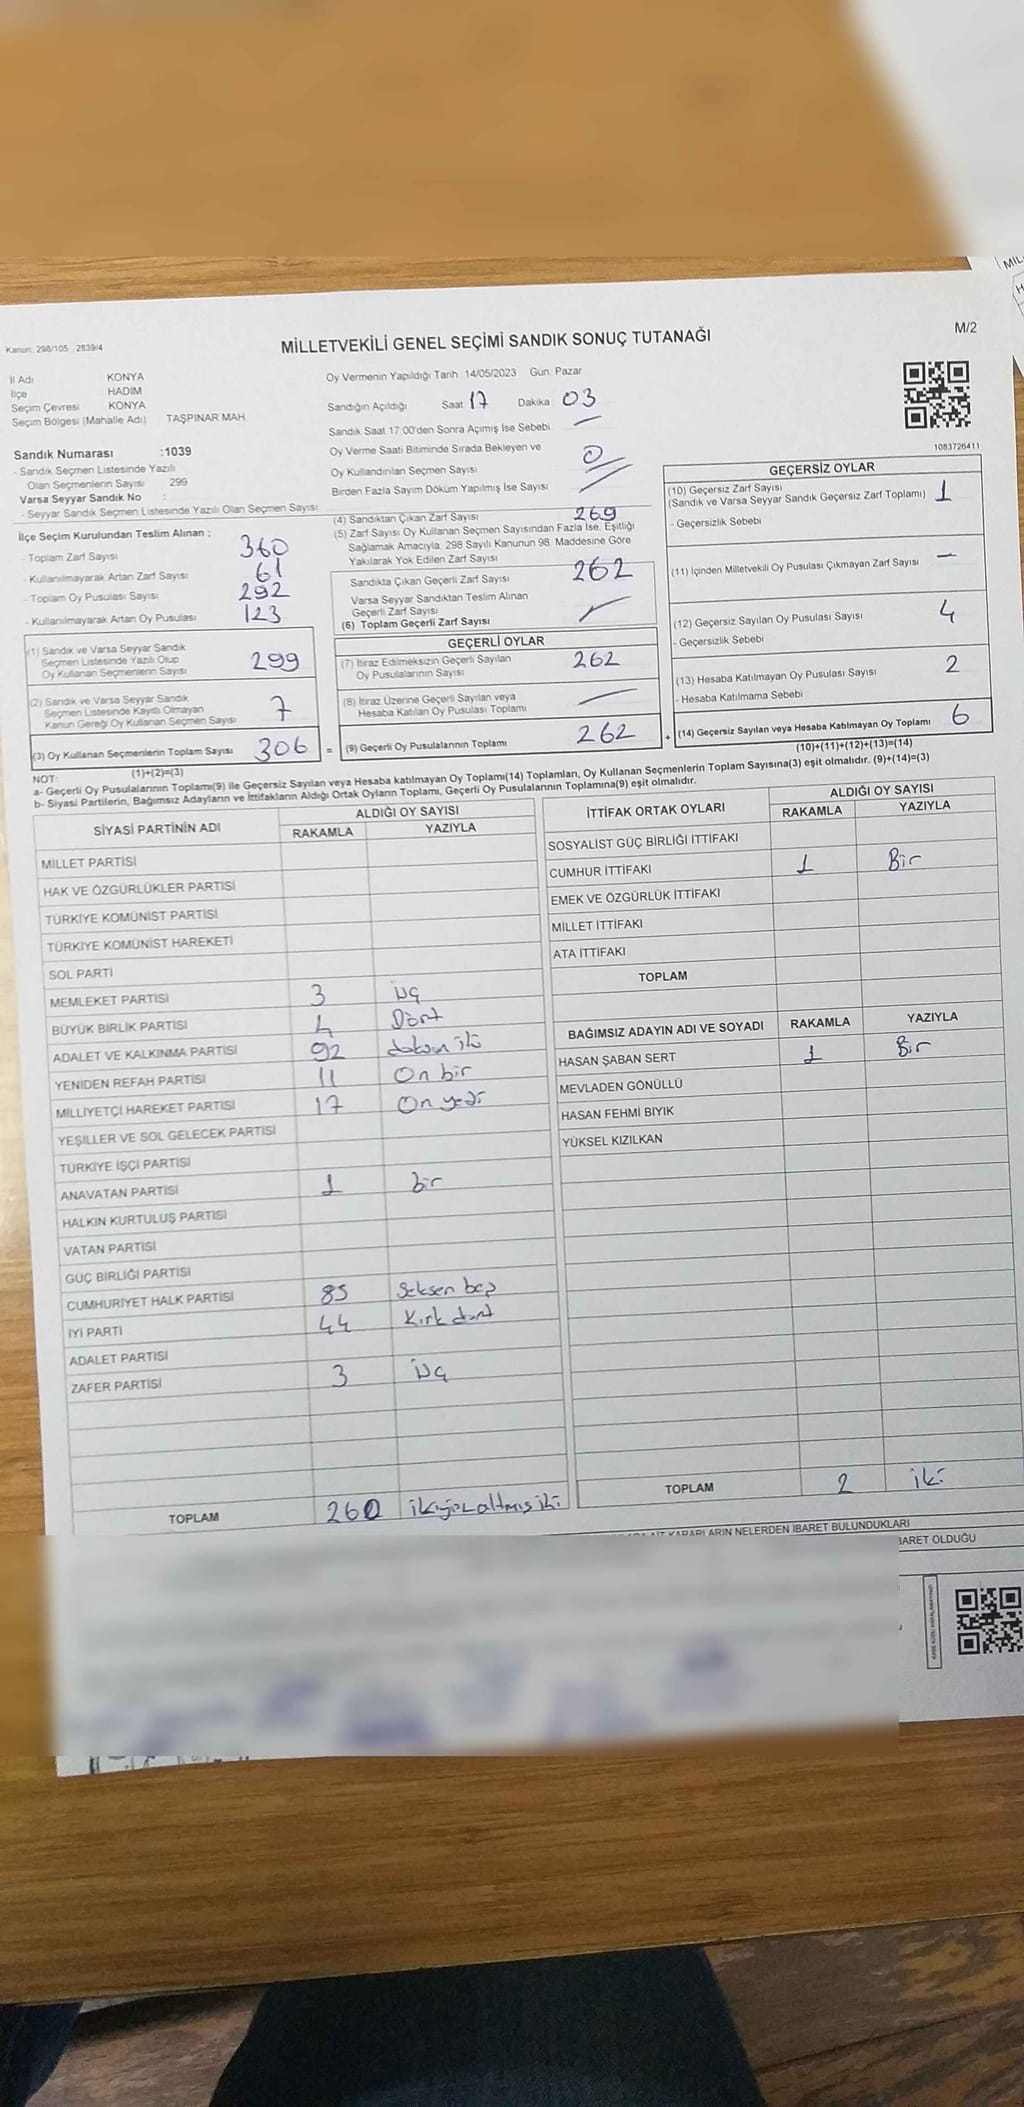 MİL
Kanun: 298/105 , 2839/4
MİLLETVEKİLİ GENEL SEÇİMİ SANDIK SONUÇ TUTANAĞI
M/2
İl Adı KONYA
İlçe HADIM
Seçim Çevresi KONYA
Seçim Bölgesi (Mahalle Adı) TAŞPINAR MAH.
Sandık Numarası :1039
- Sandık Seçmen Listesinde Yazılı
Olan Seçmenlerin Sayısı 299
Varsa Seyyar Sandık No :
- Seyyar Sandık Seçmen Listesinde Yazılı Olan Seçmen Sayısı:
Oy Vermenin Yapıldığı Tarih :14/05/2023 Gün: Pazar
Sandığın Açıldığı Saat 17 Dakika 03
Sandık Saat 17:00'den Sonra Açımış İse Sebebi
Oy Verme Saati Bitiminde Sırada Bekleyen ve
Oy Kullandırılan Seçmen Sayısı 0
Birden Fazla Sayım Döküm Yapılmış İse Sayısı
1083726411
İlçe Seçim Kurulundan Teslim Alınan :
- Toplam Zarf Sayısı 360
- Kullanılmayarak Artan Zarf Sayısı 61
- Toplam Oy Pusulası Sayısı 292
- Kullanılmayarak Artan Oy Pusulası 123
(1) Sandık ve Varsa Seyyar Sandık
Seçmen Listesinde Yazılı Olup
Oy Kullanan Seçmenlerin Sayısı 299
(2) Sandık ve Varsa Seyyar Sandık
Seçmen Listesinde Kayıtlı Olmayan
Kanun Gereği Oy Kullanan Seçmen Sayısı 7
(3) Oy Kullanan Seçmenlerin Toplam Sayısı 306
(1)+(2)=(3)
(4) Sandıktan Çıkan Zarf Sayısı 269
(5) Zarf Sayısı Oy Kullanan Seçmen Sayısından Fazla İse, Eşitliği
Sağlamak Amacıyla, 298 Sayılı Kanunun 98. Maddesine Göre
Yakılarak Yok Edilen Zarf Sayısı
Sandıkta Çıkan Geçerli Zarf Sayısı 262
Varsa Seyyar Sandıktan Teslim Alınan
Geçerli Zarf Sayısı
(6) Toplam Geçerli Zarf Sayısı
GEÇERLİ OYLAR
(7) İtiraz Edilmeksizin Geçerli Sayılan
Oy Pusulalarının Sayısı 262
(8) İtiraz Üzerine Geçerli Sayılan veya
Hesaba Katılan Oy Pusulası Toplamı
= (9) Geçerli Oy Pusulalarının Toplamı 262
GEÇERSİZ OYLAR
(10) Geçersiz Zarf Sayısı
(Sandık ve Varsa Seyyar Sandık Geçersiz Zarf Toplamı) 1
- Geçersizlik Sebebi
(11) İçinden Milletvekili Oy Pusulası Çıkmayan Zarf Sayısı –
(12) Geçersiz Sayılan Oy Pusulası Sayısı 4
- Geçersizlik Sebebi
(13) Hesaba Katılmayan Oy Pusulası Sayısı 2
- Hesaba Katılmama Sebebi
+ (14) Geçersiz Sayılan veya Hesaba Katılmayan Oy Toplamı 6
(10)+(11)+(12)+(13)=(14)
NOT:
a- Geçerli Oy Pusulalarının Toplamı(9) ile Geçersiz Sayılan veya Hesaba katılmayan Oy Toplamı(14) Toplamları, Oy Kullanan Seçmenlerin Toplam Sayısına(3) eşit olmalıdır. (9)+(14)=(3)
b- Siyasi Partilerin, Bağımsız Adayların ve İttifakların Aldığı Ortak Oyların Toplamı, Geçerli Oy Pusulalarının Toplamına(9) eşit olmalıdır.
SİYASİ PARTİNİN ADI ALDIĞI OY SAYISI
RAKAMLA YAZIYLA
MİLLET PARTİSİ
HAK VE ÖZGÜRLÜKLER PARTİSİ
TÜRKİYE KOMÜNİST PARTİSİ
TÜRKİYE KOMÜNİST HAREKETİ
SOL PARTİ
MEMLEKET PARTİSİ 3 üç
BÜYÜK BİRLİK PARTİSİ 4 Dört
ADALET VE KALKINMA PARTİSİ 92 doksan iki
YENİDEN REFAH PARTİSİ 11 On bir
MİLLİYETÇİ HAREKET PARTİSİ 17 On yedi
YEŞİLLER VE SOL GELECEK PARTİSİ
TÜRKİYE İŞÇİ PARTİSİ
ANAVATAN PARTİSİ 1 bir
HALKIN KURTULUŞ PARTİSİ
VATAN PARTİSİ
GÜÇ BİRLİĞİ PARTİSİ
CUMHURİYET HALK PARTİSİ 85 Seksen beş
İYİ PARTİ 44 Kırk dört
ADALET PARTİSİ
ZAFER PARTİSİ 3 üç
TOPLAM 260 ikiyüz altmış iki
İTTİFAK ORTAK OYLARI ALDIĞI OY SAYISI
RAKAMLA YAZIYLA
SOSYALİST GÜÇ BİRLİĞİ İTTİFAKI
CUMHUR İTTİFAKI 1 Bir
EMEK VE ÖZGÜRLÜK İTTİFAKI
MİLLET İTTİFAKI
ATA İTTİFAKI
TOPLAM
BAĞIMSIZ ADAYIN ADI VE SOYADI RAKAMLA YAZIYLA
HASAN ŞABAN SERT 1 Bir
MEVLADEN GÖNÜLLÜ
HASAN FEHMİ BIYIK
YÜKSEL KIZILKAN
TOPLAM 2 iki
KARARLARIN NELERDEN İBARET BULUNDUKLARI
BARET OLDUĞU